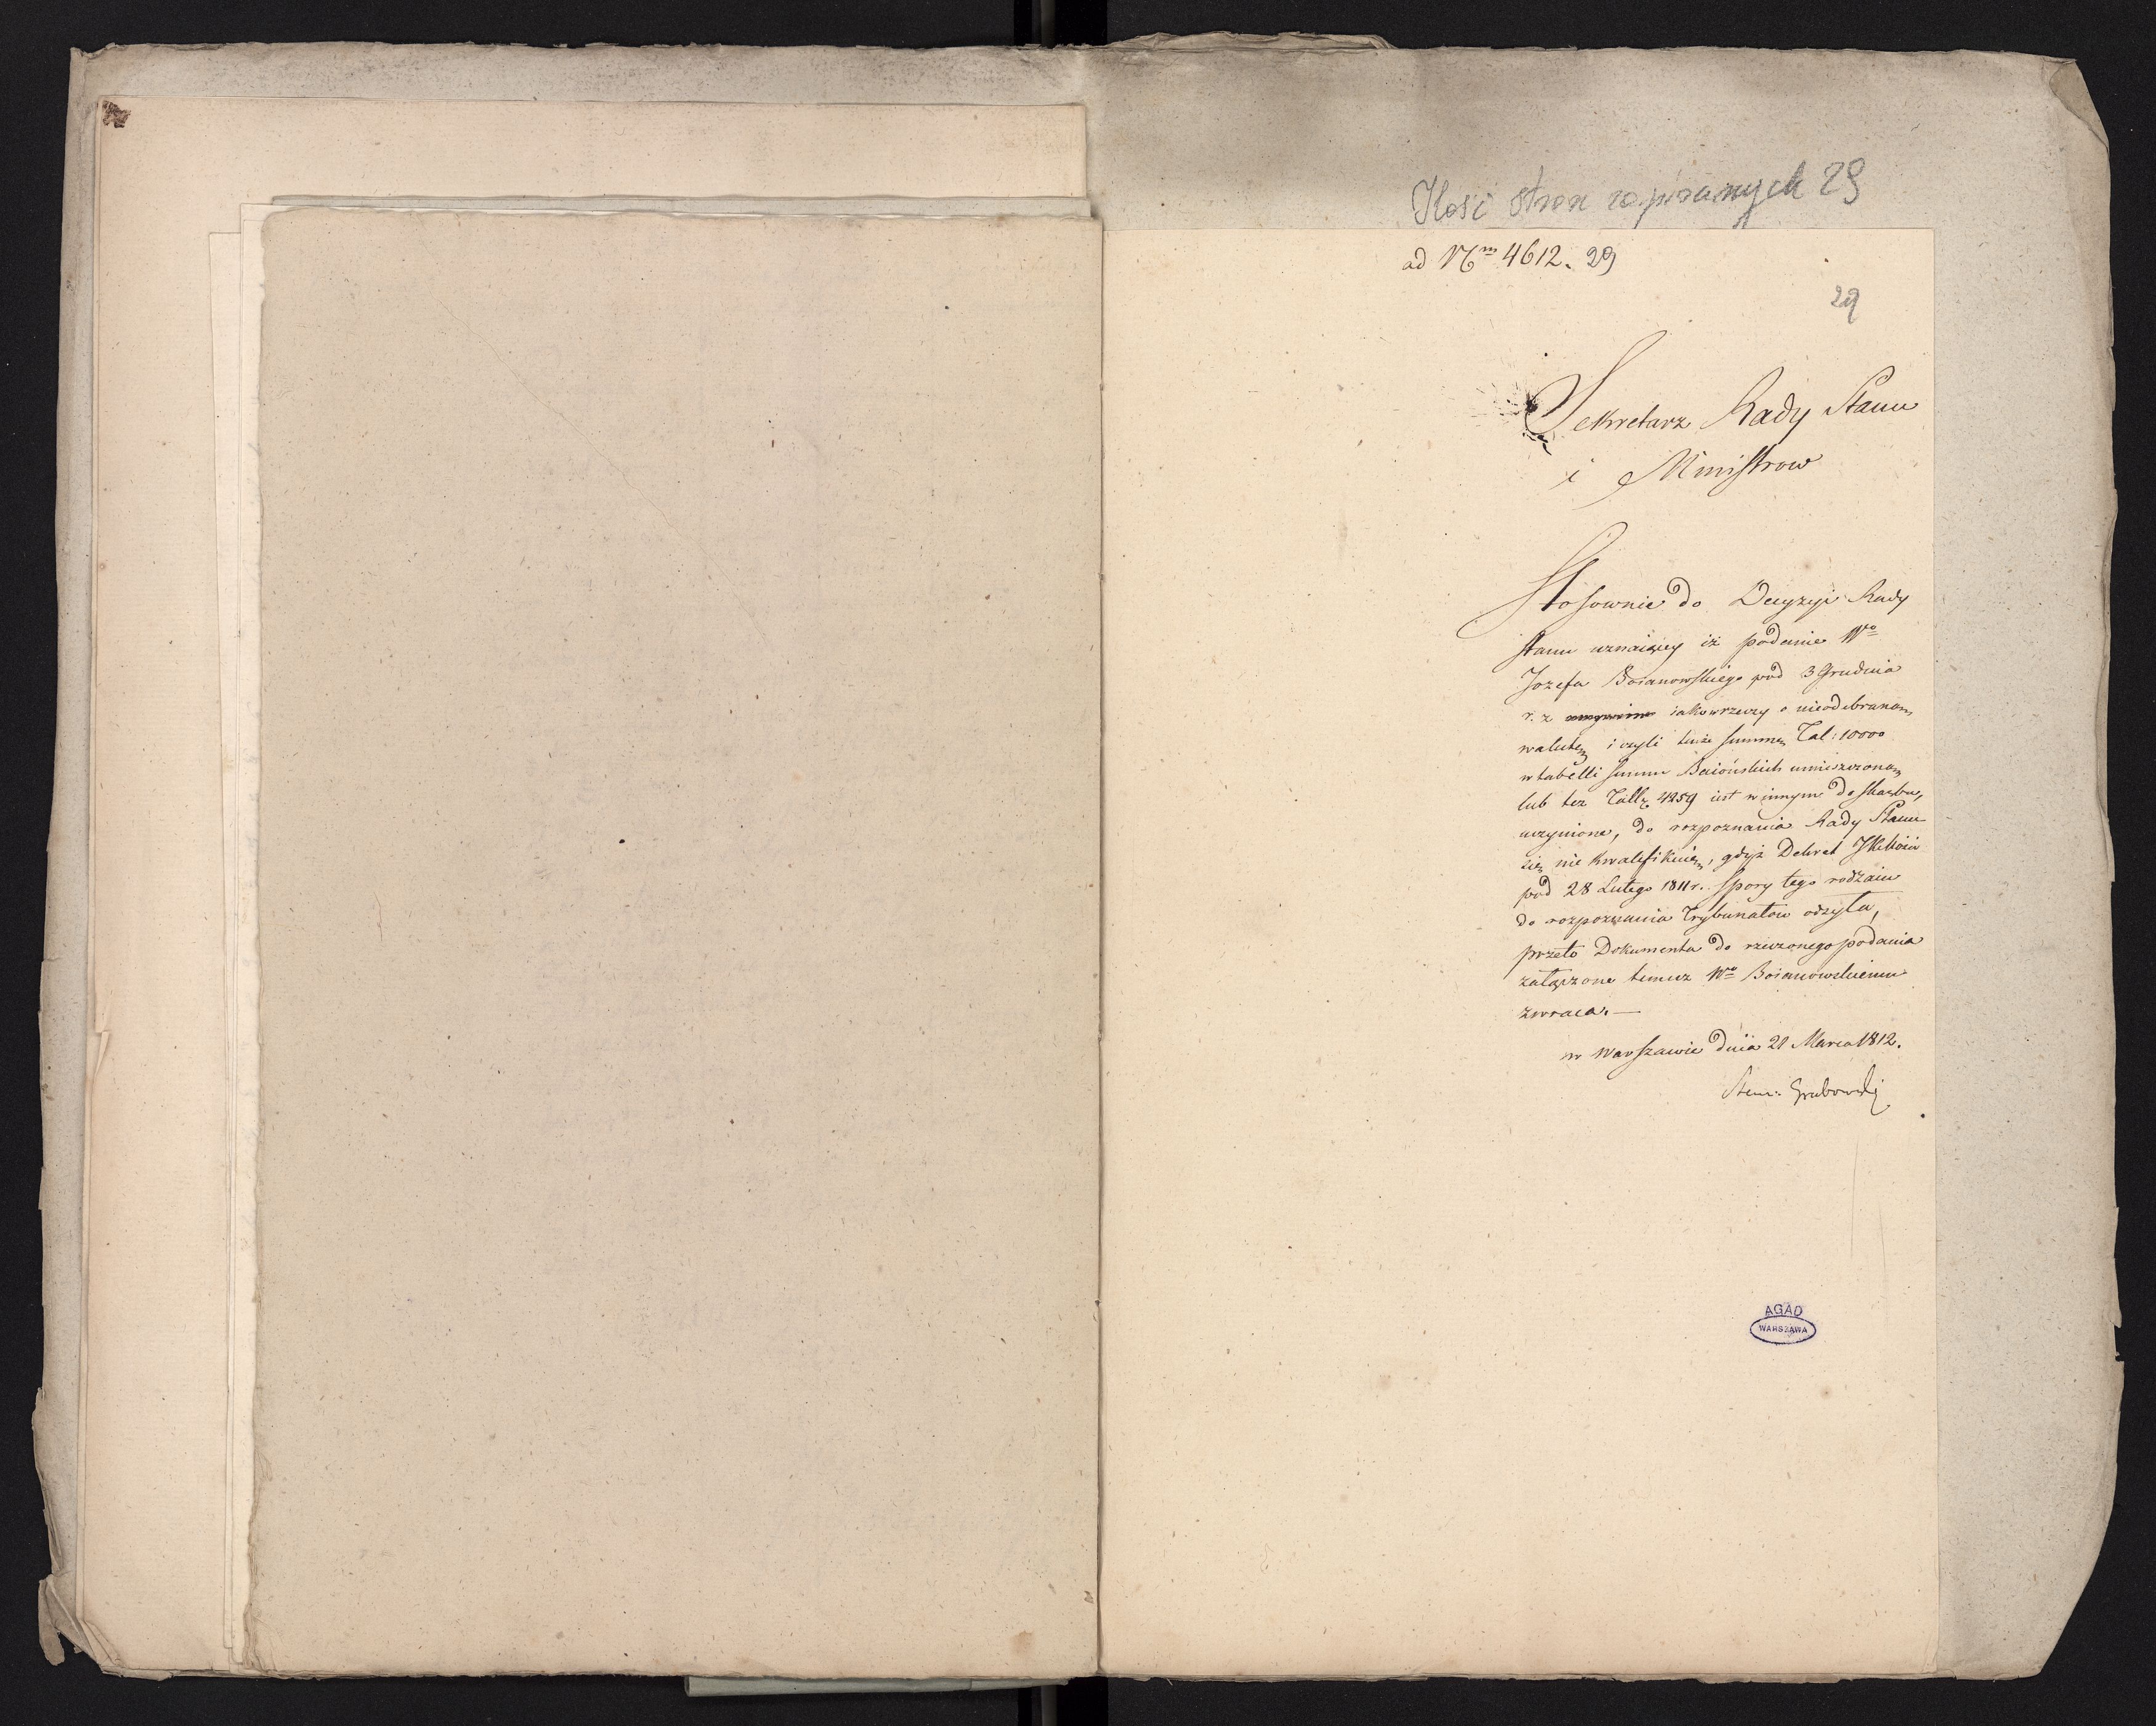 Ilość stron zapisanych 29
ad Nm 4612. 29
29
Sekretarz Rady Stanu
i Ministrow
Stosownie do Decyzyi Rady
stanu uznaiącey iż podanie Wo
Jozefa Boianowskiego pod 3 Grudnia
r. z iako w rzeczy o nieodebraną
walutę, i czyli też summę Tal: 10000
w tabelli summ Baiońskich umieszczoną
lub tez Tallr 4259 iest winnym do skarbu,
uczynione, do rozpoznania Rady Stanu
się nie kwalifikuie, gdyż Dekret JKMości
pod 28 Lutego 1811 r. spory tego rodzaiu
do rozpoznania Trybunałow odsyła,
przeto Dokumenta do rzeczonego podania
załączone temuz Wo Boianowskiemu
zwraca. —
w Warszawie dnia 21 Marca 1812.
Stan: Grabowski
AGAD
WARSZAWA